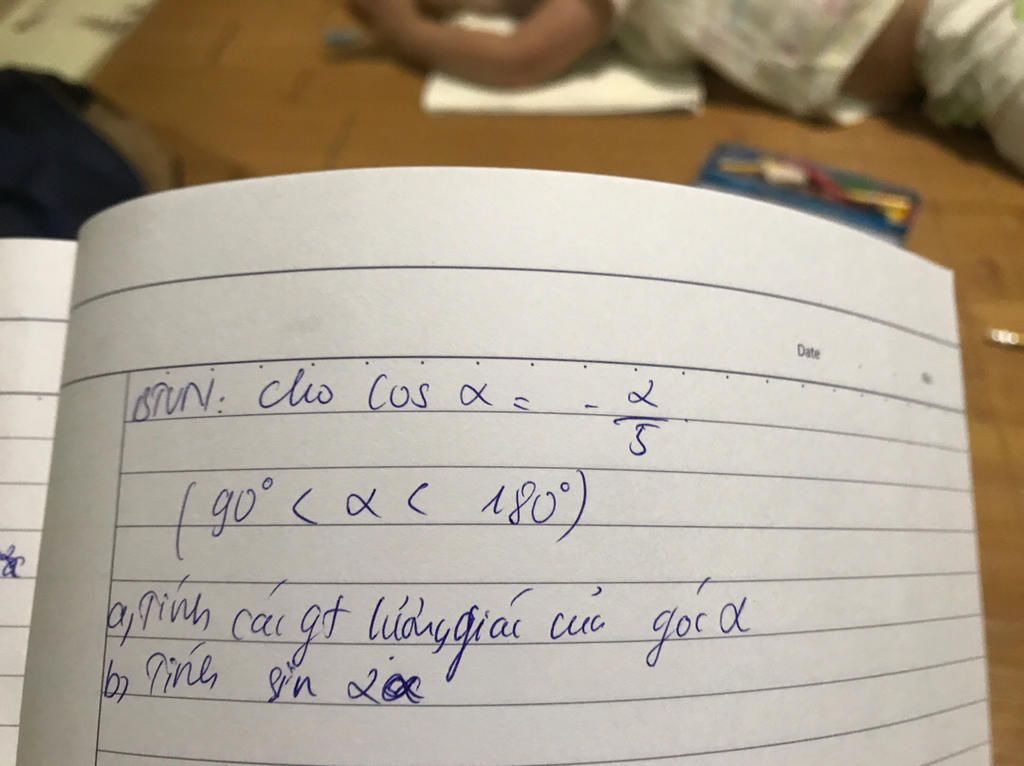 Date
No
BTVN: Cho Cos α = - 2/5
(90° < α < 180°)
a, Tính các gt lượng giác của góc α
b, Tính sin 2α